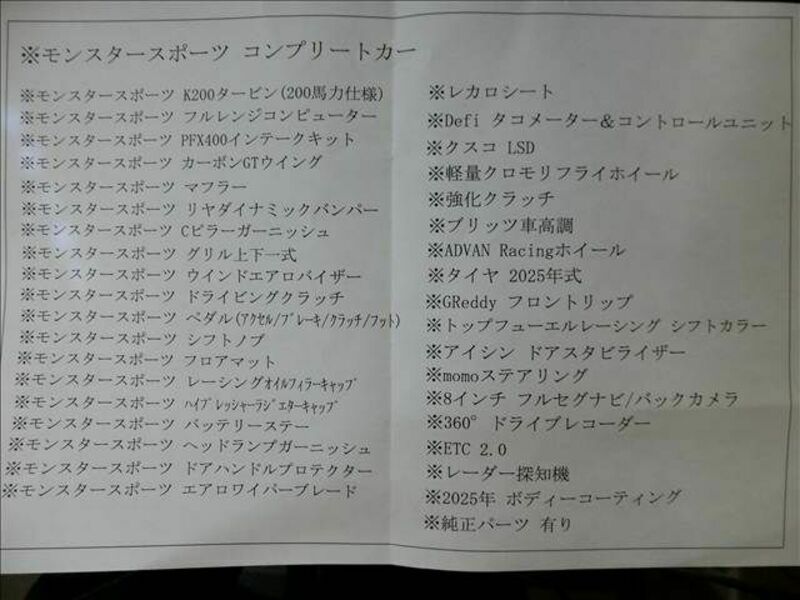 ※モンスタースポーツ コンプリートカー
※モンスタースポーツ K200タービン(200馬力仕様)
※モンスタースポーツ フルレンジコンピューター
※モンスタースポーツ PFX400インテークキット
※モンスタースポーツ カーボンGTウイング
※モンスタースポーツ マフラー
※モンスタースポーツ リヤダイナミックバンパー
※モンスタースポーツ Cピラーガーニッシュ
※モンスタースポーツ グリル上下一式
※モンスタースポーツ ウインドエアロバイザー
※モンスタースポーツ ドライビングクラッチ
※モンスタースポーツ ペダル(ｱｸｾﾙ/ﾌﾞﾚｰｷ/ｸﾗｯﾁ/ﾌｯﾄ)
※モンスタースポーツ シフトノブ
※モンスタースポーツ フロアマット
※モンスタースポーツ レーシングｵｲﾙﾌｨﾗｰｷｬｯﾌﾟ
※モンスタースポーツ ﾊｲﾌﾟﾚｯｼｬｰﾗｼﾞｴﾀｰｷｬｯﾌﾟ
※モンスタースポーツ バッテリーステー
※モンスタースポーツ ヘッドランプガーニッシュ
※モンスタースポーツ ドアハンドルプロテクター
※モンスタースポーツ エアロワイパーブレード
※レカロシート
※Defi タコメーター＆コントロールユニット
※クスコ LSD
※軽量クロモリフライホイール
※強化クラッチ
※ブリッツ車高調
※ADVAN Racingホイール
※タイヤ 2025年式
※GReddy フロントリップ
※トップフューエルレーシング シフトカラー
※アイシン ドアスタビライザー
※momoステアリング
※8インチ フルセグナビ/バックカメラ
※360° ドライブレコーダー
※ETC 2.0
※レーダー探知機
※2025年 ボディーコーティング
※純正パーツ 有り